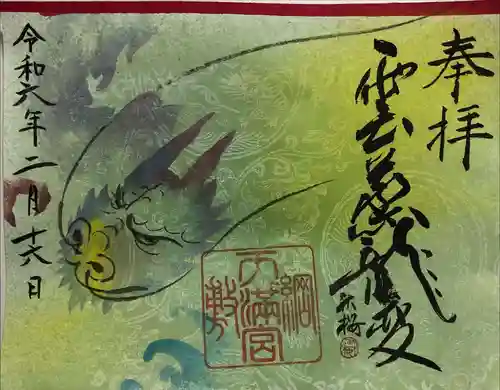 奉拝
雲蒸龍変
綱敷
天満宮
令和六年二月十六日